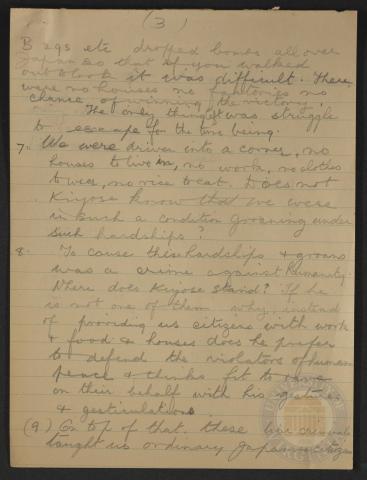 (3)
B 29s etc dropped bombs all over
Japan so that if you walked
out to look it was difficult. There
were no houses no factories no
chance of winning the victory.
The only thing left was struggle
to escape for the time being.
7. We were driven into a corner, no
houses to live in, no work, no clothes
to wear, no rice to eat. Does not
Kiyose know that we were
in such a condition groaning under
such hardships?
8. To cause these hardships & groans
was a crime against humanity.
Where does Kiyose stand? If he
is not one of them why, instead
of providing us citizens with work
& food & houses does he prefer
to defend the violators of human
peace & thinks fit to
on their behalf with his gestures
& gesticulations
(9.) On top of that, these war criminals
taught us ordinary Japanese citizens